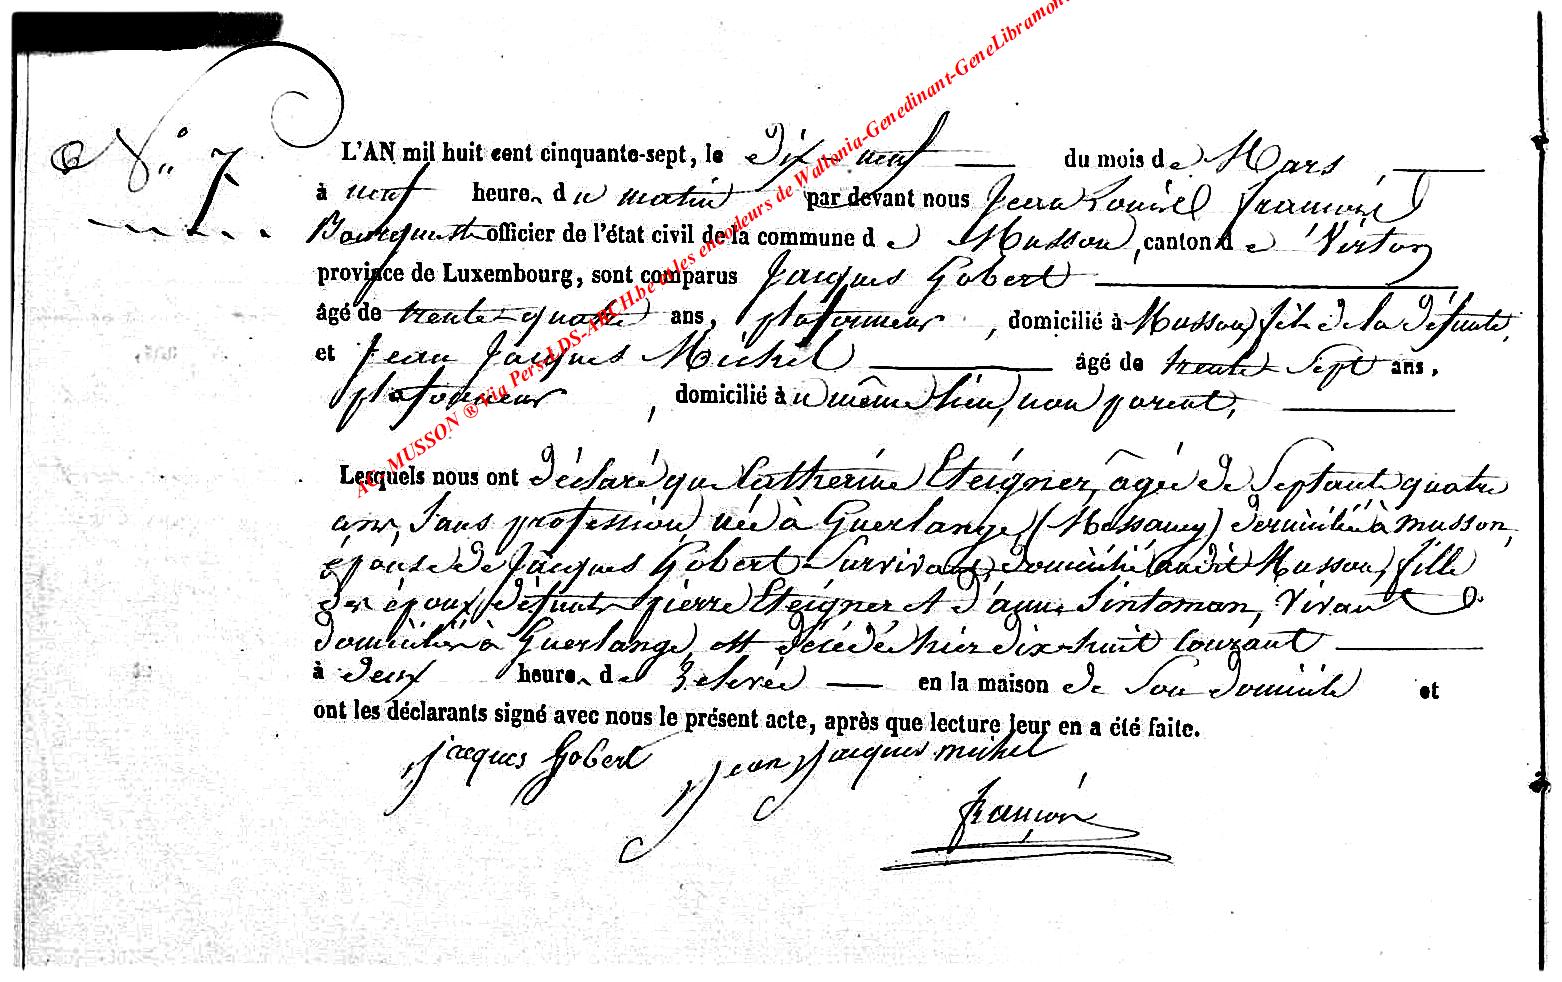 N° 7
L'AN mil huit cent cinquante-sept, le dix-neuf du mois de Mars,
à neuf heures du matin par devant nous Jean Louis François
Bourgmestre officier de l'état civil de la commune de Musson, canton de Virton
province de Luxembourg, sont comparus Jacques Gobert
âgé de trente-quatre ans, plafonneur, domicilié à Musson, fils de la défunte,
et Jean Jacques Michel âgé de trente Sept ans,
plafonneur, domicilié au même lieu, non parent,
Lesquels nous ont déclaré que Catherine Eteigner, âgée de Septante quatre
ans, Sans profession, née à Guerlange, (Messancy) domiciliée à musson,
épouse de Jacques Gobert Survivant, domicilié audit Musson, fille
des époux défunts pierre Eteigner et d'anne Sintoman, Vivant
domiciliés à Guerlange, est décédée hier dix-huit Courant
à deux heures de relevée en la maison de Son domicile et
ont les déclarants signé avec nous le présent acte, après que lecture leur en a été faite.
jacques Gobert jean jacques michel
françois
AC. MUSSON ® Via Perso LDS-ARCH.be et les encodeurs de Wallonia-Genedinant-GeneLibramont